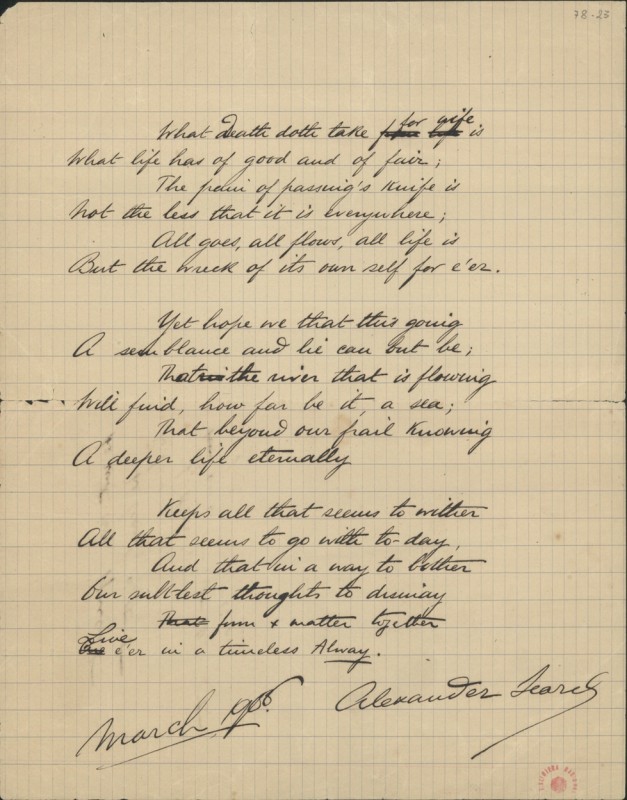 78-23
What Death doth take for wife is
What life has of good and of fair;
The pain of passing's knife is
Not the less that it is everywhere;
All goes, all flows, all life is
But the wreck of its own self for e'er.
Yet hope we that this going
A semblance and lie can but be;
That the river that is flowing
Will find, how far be it, a sea;
That beyond our frail knowing
A deeper life eternally
Keeps all that seems to wither
All that seems to go with to-day,
And that in a way to bother
Our subtlest thoughts to dismay
That form & matter together
Live e'er in a timeless Alway.
March 1906.
Alexander Search